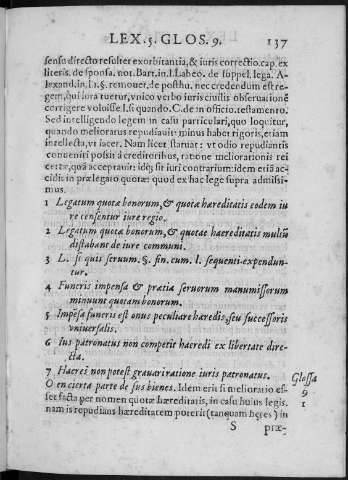 LEX. 5. GLOS. 9. 137
sensu directo resultet exorbitantia, & iuris correctio. cap. ex
literis. de sponsa. not. Barr. in. l. Labeo. de suppel. lega. A-
lexand. in. l. 1. §. remouet, de posthu. nec credendum est re-
gem, qui iura tuetur, vnico verbo iuris ciuilis obseruationē
corrigere voluisse. l. si quando. C. de in offici o. testamento.
Sed intelligendo legem in casu particulari, quo loquitur,
quando melioratus repudiauit: minus habet rigoris, etiam
intellecta, vt iacet. Nam licet statuat: vt odio repudiantis
conueniti possit à creditoribus, ratione meliorationis rei
certæ, quā acceptauit: idē; sit iuri contrarium: idem etiā ac-
cidit in prælegato quotæ: quod ex hac lege supra admisi-
mus.
1 Legatum quotæ bonorum, & quotæ hæreditatis eodem iu
re censentur iure regio.
2 Legatum quotæ bonorum, & quotæ haereditatis multū
distabant de iure communi.
3 L. si quis seruum. §. fin. cum. l. sequenti expendun-
tur.
4 Funeris impensa & pratia seruorum manumissorum
minuunt quotam bonorum.
5 Impēsa funeris est onus peculiare hæredis, seu successoris
vniuersalis.
6 Ius patronatus non competit haeredi ex libertate dire-
cta.
7 Haeres non potest grauari ratione iuris patronatus.
O en cierta parte de sus bienes. Idem erit si melioratio es-
set facta per nomen quotæ hæreditatis, in casu huius legis.
nam is repudians hæreditatem poterit (tanquam hęres) in
Glossa
9
1
S præ-